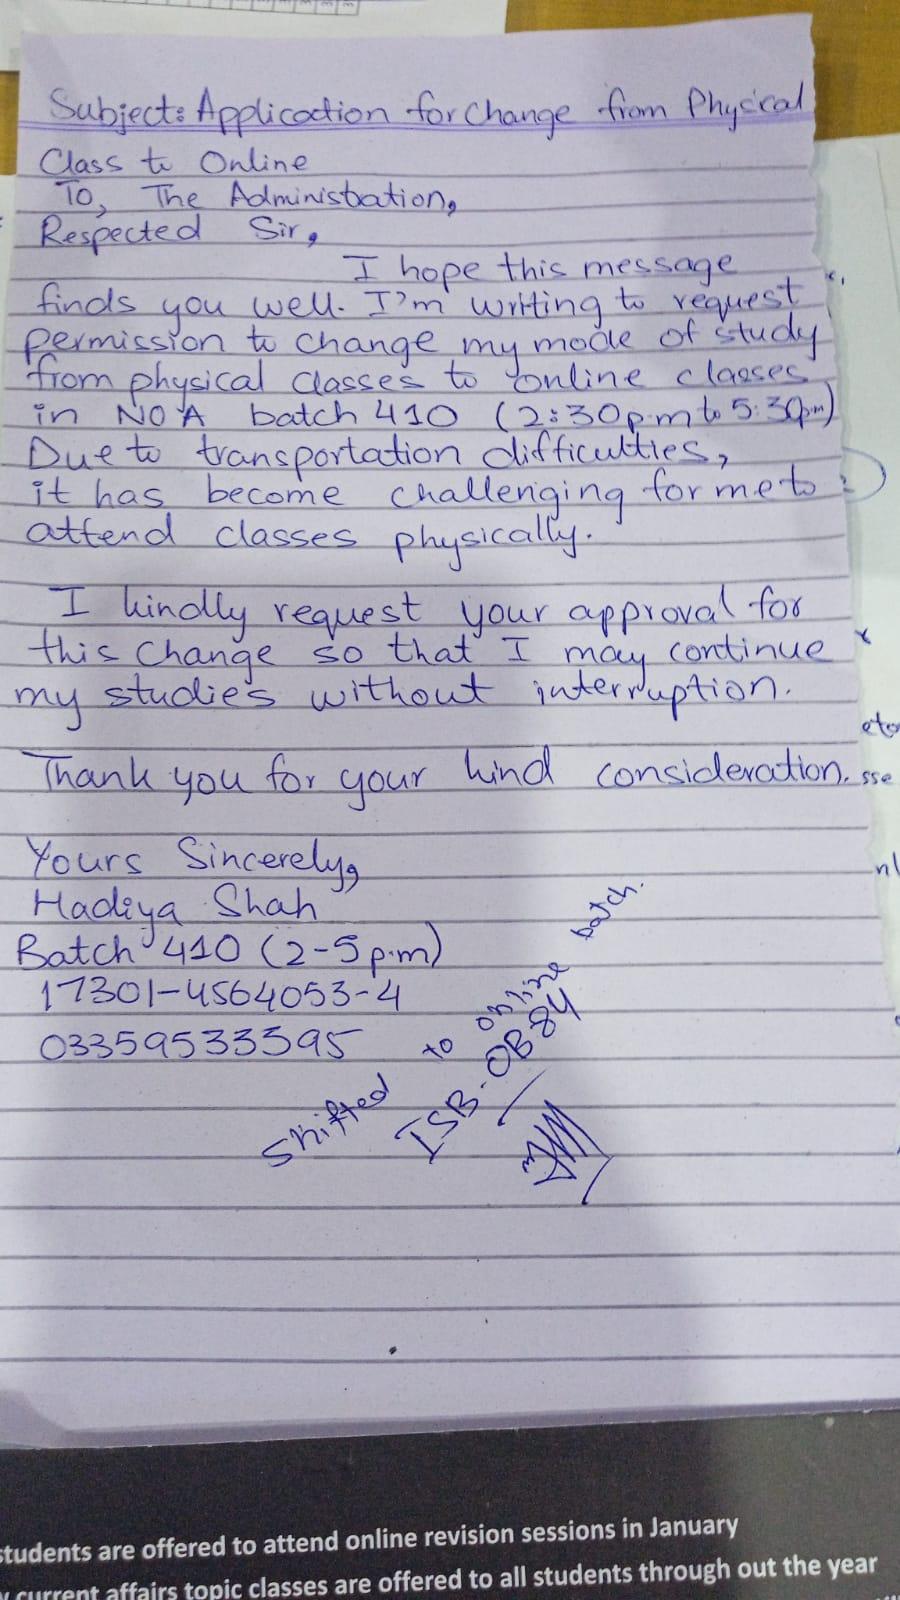 Subject: Application for Change from Physical
Class to Online
To, The Administration,
Respected Sir,
I hope this message
finds you well. I'm writing to request
permission to change my mode of study
from physical classes to online classes
in NOA batch 410 (2:30p.m to 5:30pm)
Due to transportation difficulties,
it has become challenging for me to
attend classes physically.
I kindly request your approval for
this change so that I may continue
my studies without interruption.
Thank you for your kind consideration.
Yours Sincerely,
Hadiya Shah
Batch 410 (2-5p.m)
17301-4564053-4
03359533395
Shifted to online batch.
ISB-OB-84
students are offered to attend online revision sessions in January
current affairs topic classes are offered to all students through out the year